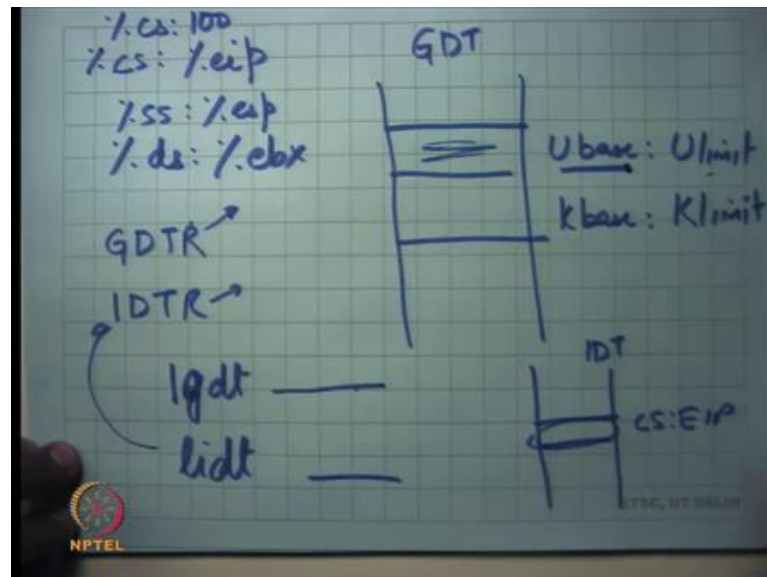 %cs: 100
%cs: %eip
%ss: %esp
%ds: %ebx
GDTR
IDTR
lgdt
lidt
GDT
Ubase: Ulimit
Kbase: Klimit
IDT
CS:EIP
ETSC, IIT DELHI
NPTEL